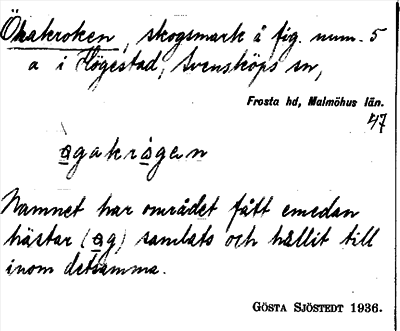 Ökakroken, skogsmark å fig. num. 5
a i Högestad, Svensköps sn,
Frosta hd, Malmöhus län.
47
øgakrågen
Namnet har området fått emedan
hästar (øg) samlats och hållit till
inom detsamma.
GÖSTA SJÖSTEDT 1936.